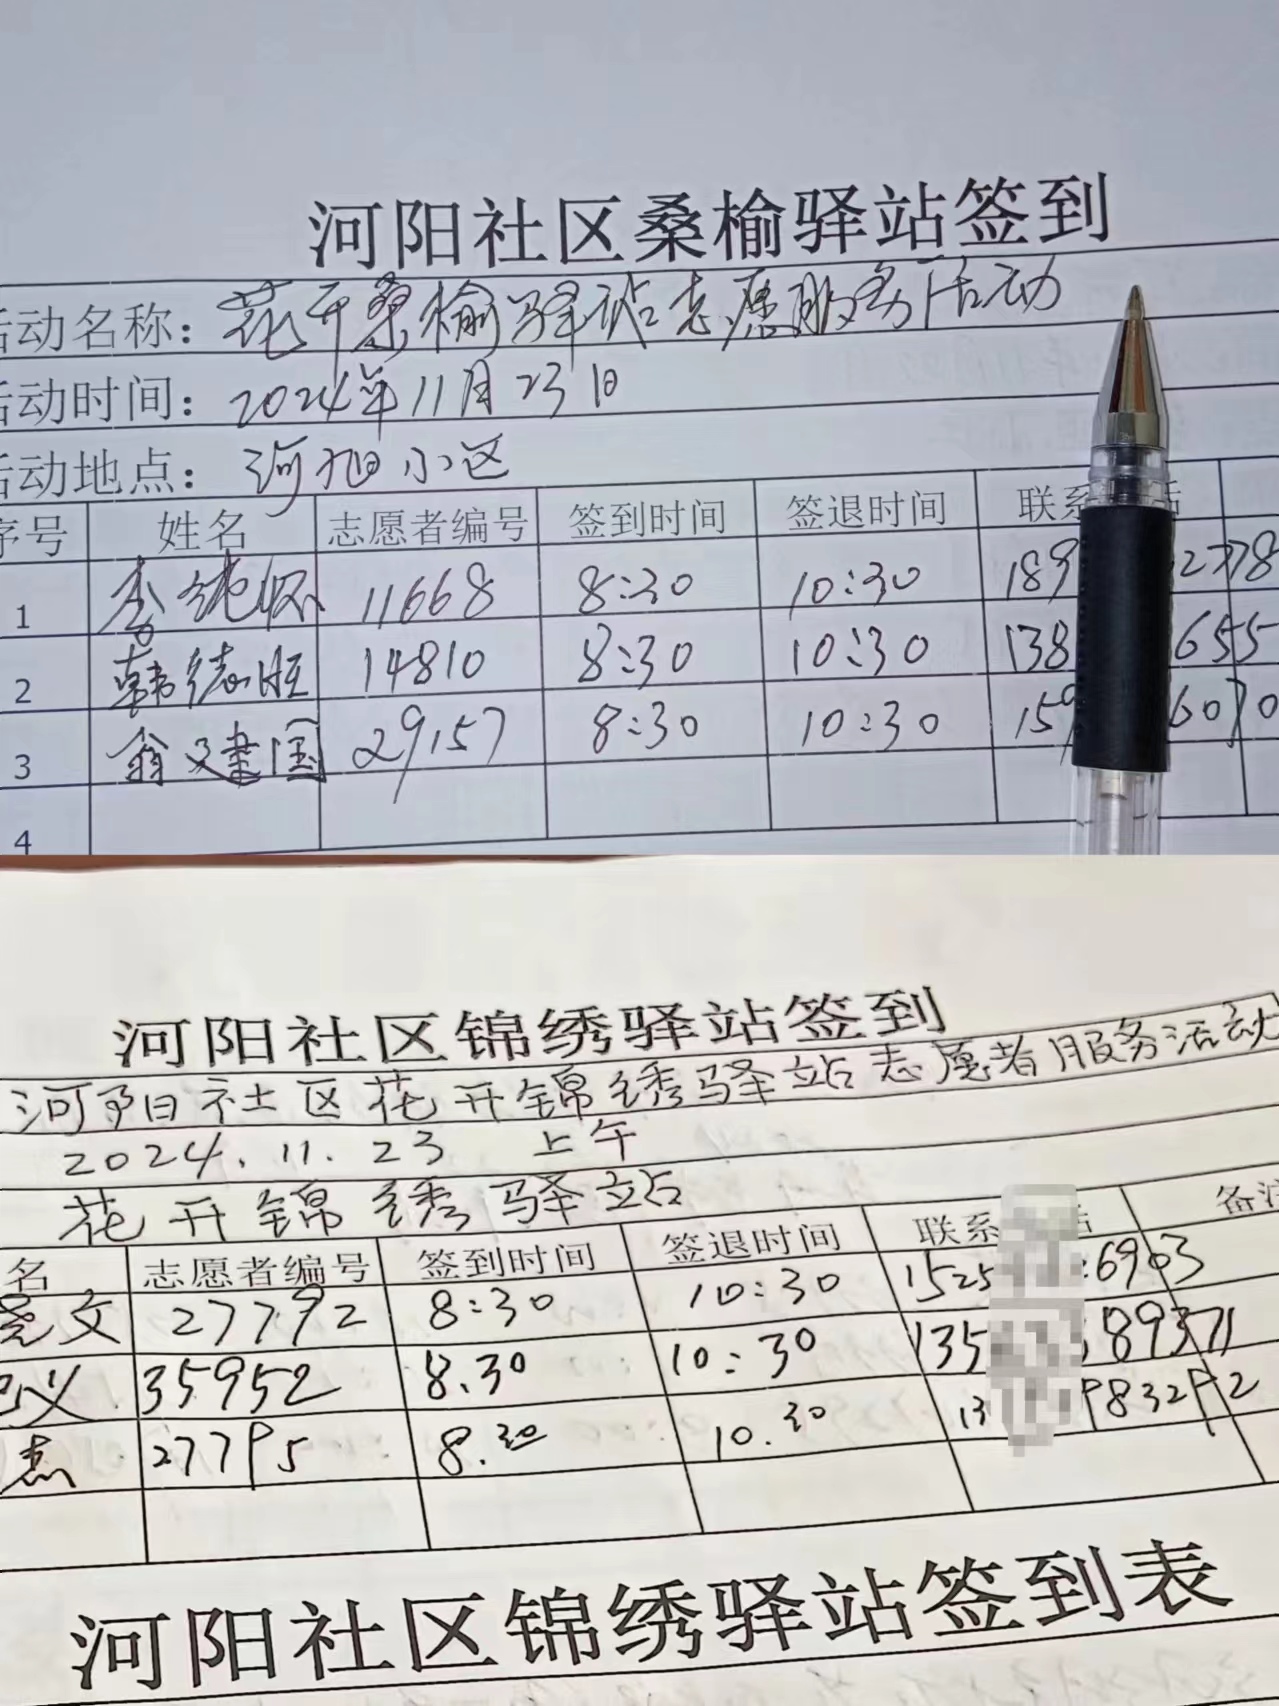 河阳社区桑榆驿站签到
活动名称：花开桑榆驿站志愿服务活动
活动时间：2024年11月23日
活动地点：河旭小区
序号 姓名 志愿者编号 签到时间 签退时间 联系 话
1 李 11668 8:30 10:30 189 2778
2 韩德旺 14810 8:30 10:30 138 655
3 翁文建国 29157 8:30 10:30 159 6070
4
河阳社区锦绣驿站签到
河阳社区花开锦绣驿站志愿者服务活动
2024.11.23 上午
花开锦绣驿站
名 志愿者编号 签到时间 签退时间 联系 话 备注
尧文 27792 8:30 10:30 1525 6903
义 35952 8.30 10:30 135 89371
杰 27795 8.30 10.30 13 983292
河阳社区锦绣驿站签到表